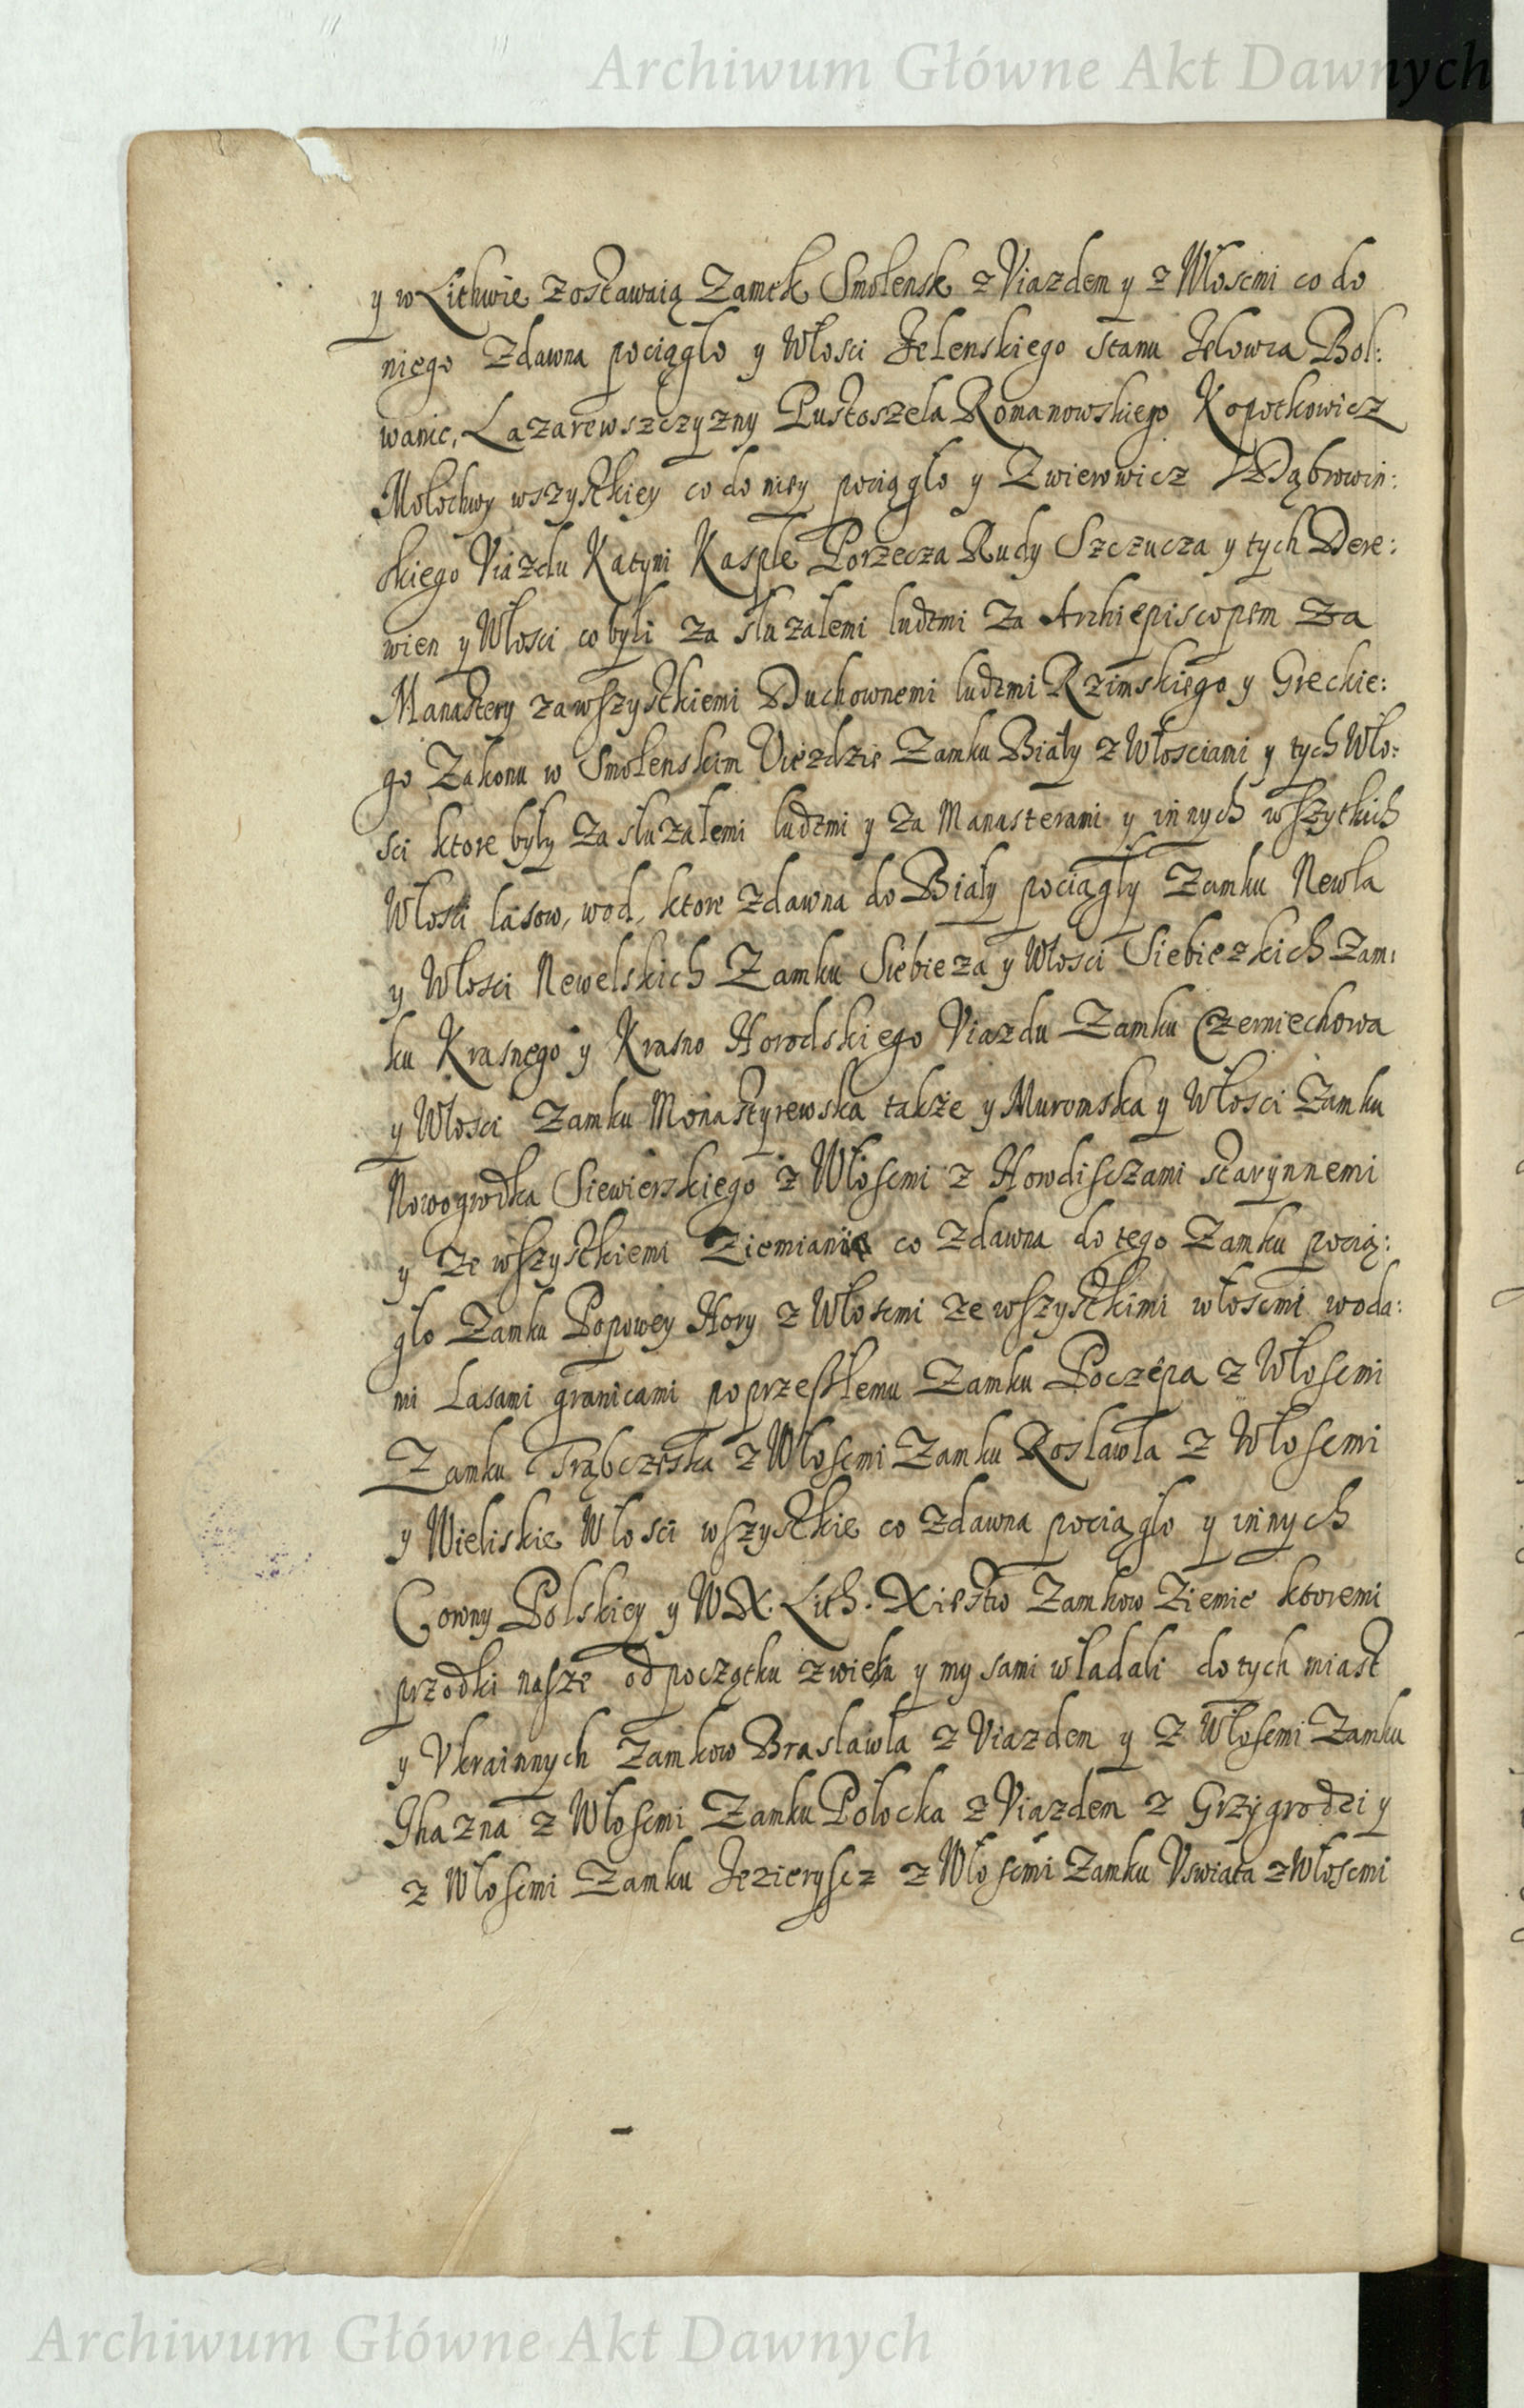 Archiwum Główne Akt Dawnych
y w Lithwie zostawaią Zamek Smolensk z Viazdem y z Włoscmi co do
niego zdawna pociągło y Włosci Jelenskiego stanu Jelowca Bol:
wanic, Lazarewszczyzny Pustoszela Romanowskiego Kopotkowicz
Mołochwy wszystkiey co do niey pociągło y Zwierowicz Dąbrowin:
skiego Viazdu Katyni Kasple Porzecza Rudy Szczucza y tych Dere:
wien y Włosci co byli za służałemi ludzmi za Archiepiscopem za
Manastery za wszystkiemi Duchownemi ludzmi Rzimskiego y Greckie:
go Zakonu w Smolenskim Viezdzie Zamku Biały z Włosciami y tych Wło:
sci ktore były za służałemi ludzmi y za Manasterami y innych wszytkich
Włosci lasow, wod, ktore zdawna do Biały pociągły Zamku Newla
y Włosci Newelskich Zamku Siebieza y Włosci Siebiezkich Zam:
ku Krasnego y Krasno Horodskiego Viazdu Zamku Czerniechowa
y Włosci Zamku Monastyrewska także y Muromska y Włosci Zamku
Nowogrodka Siewierskiego z Włoscmi z Horodisczami starynnemi
y ze wszystkiemi Ziemianie co zdawna do tego Zamku pocią:
gło Zamku Popowey Hory z Włoscmi ze wszystkimi włoscmi woda:
mi Lasami granicami poprzeszłemu Zamku Poczepa z Włoscmi
Zamku Trąbczeska z Włoscmi Zamku Rosławla z Włoscmi
y Wieliskie Włosci wszystkie co zdawna pociągło y innych
Corony Polskiey y W X. Lith. Xięstw Zamkow Ziemie ktoremi
przodki nasze od początku zwieku y my sami władali do tych miast
y Vkrainnych Zamkow Brasławla z Viazdem y z Włoscmi Zamku
Ihazna z Włoscmi Zamku Połocka z Viazdem z Grzygrodzi y
z Włoscmi Zamku Jezieryscz z Włoscmi Zamku Vswiata z Włoscmi
Archiwum Główne Akt Dawnych